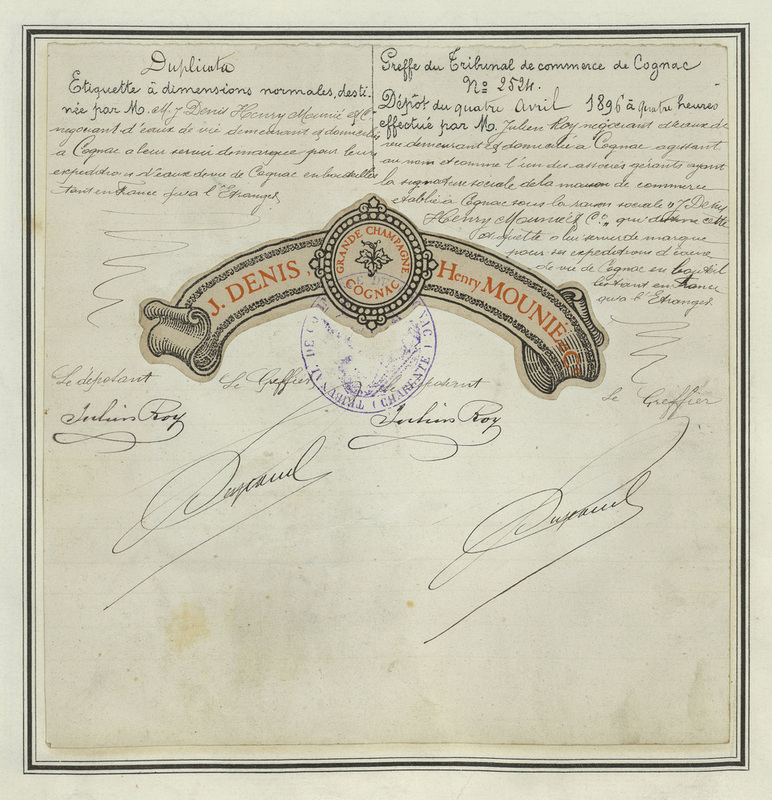 Duplicata
Etiquette à dimensions normales, desti-
née par M. M J Denis Henry Mounié & Cie
négociant d'eaux de vie demeurant et domiciliés
à Cognac a leur servir de marque pour leurs
expeditions d'eaux de vie de Cognac en bouteilles
tant en France qu'a l'Etranger
Greffe du Tribunal de commerce de Cognac
No 2524.
Dépôt du quatre Avril 1896 à quatre heures
effectué par M. Julien Roy négociant d'eaux de
vie demeurant et domicilié à Cognac agissant
au nom et comme l'un des associés gérants ayant
la signature sociale de la maison de commerce
etablie à Cognac sous la raison sociale "J Denis
Henry Mounié & Co" qui destine cette
étiquette a lui servir de marque
pour ses expeditions d'eaux
de vie de Cognac en bouteil
les tant en France
qu'a l'Etranger
J. DENIS,
GRANDE CHAMPAGNE
COGNAC
Henry MOUNIÉ & Co
TRIBUNAL DE CO
(CHARENTE)
Le déposant
Le Greffier
Le Greffier
Julien Roy
Julien Roy